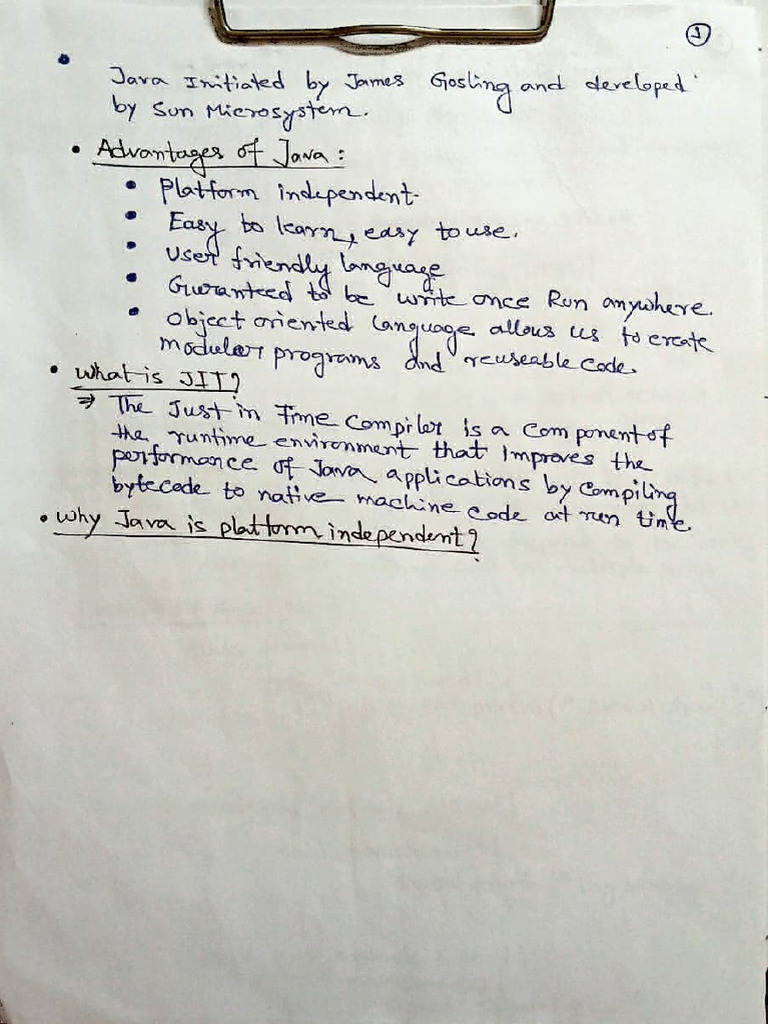 ①
• Java Initiated by James Gosling and developed
by Sun Microsystem.
• Advantages of Java :
• Platform independent
• Easy to learn, easy to use.
• User friendly language
• Guranteed to be write once Run anywhere.
• Object oriented language allows us to create
modular programs and reuseable code.
• What is JIT?
⇒ The Just in Time compiler is a component of
the runtime environment that improves the
performance of Java applications by compiling
bytecode to native machine code at run time.
• Why Java is platform independent?